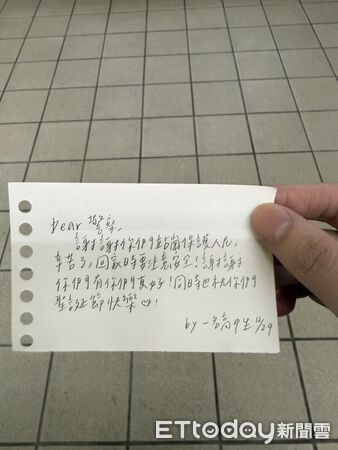 Dear 警察,
謝謝你們站崗保護人民,
辛苦了,回家時要注意安全!謝謝
你們有你們真好!同時也祝你們
聖誕節快樂♡!
by 一名高中生 12/29
ETtoday新聞雲